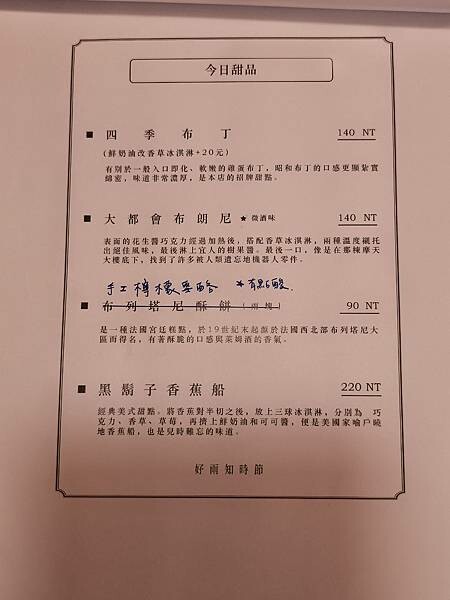 今日甜品
■ 四季布丁 140 NT
(鮮奶油改香草冰淇淋+20元)
有別於一般入口即化、軟嫩的雞蛋布丁，昭和布丁的口感更顯紮實
綿密，味道非常濃厚，是本店的招牌甜點。
■ 大都會布朗尼 ★微酒味 140 NT
表面的花生醬巧克力經過加熱後，搭配香草冰淇淋，兩種溫度襯托
出絕佳風味，最後淋上宜人的樹果醬。最後一口，像是在那棟摩天
大樓底下，找到了許多被人類遺忘地機器人零件。
手工檸檬栗酥 *有點酸
■ 布列塔尼酥餅(兩塊) 90 NT
是一種法國宮廷糕點，於19世紀末起源於法國西北部布列塔尼大
區而得名，有著酥脆的口感與萊姆酒的香氣。
■ 黑鬍子香蕉船 220 NT
經典美式甜點。將香蕉對半切之後，放上三球冰淇淋，分別為 巧
克力、香草、草莓，再擠上鮮奶油和可可醬，便是美國家喻戶曉
地香蕉船，也是兒時難忘的味道。
好雨知時節